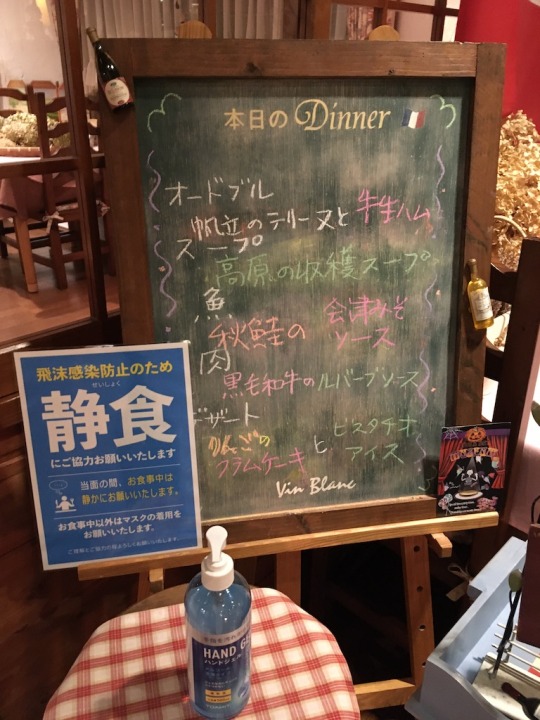 本日の Dinner
オードブル
帆立のテリーヌと 牛生ハム
スープ
高原の収穫スープ
魚
秋鮭の 会津みそ
ソース
肉
黒毛和牛のルバーブソース
デザート
りんごの
クラムケーキ と ピスタチオ
アイス
Vin Blanc
飛沫感染防止のため
せいしょく
静食
にご協力お願いいたします
当面の間、お食事中は
静かにお願いいたします。
お食事中以外はマスクの着用を
お願いいたします。
ご理解とご協力の程よろしくお願い致します。
HAND GE
ハンドジェル